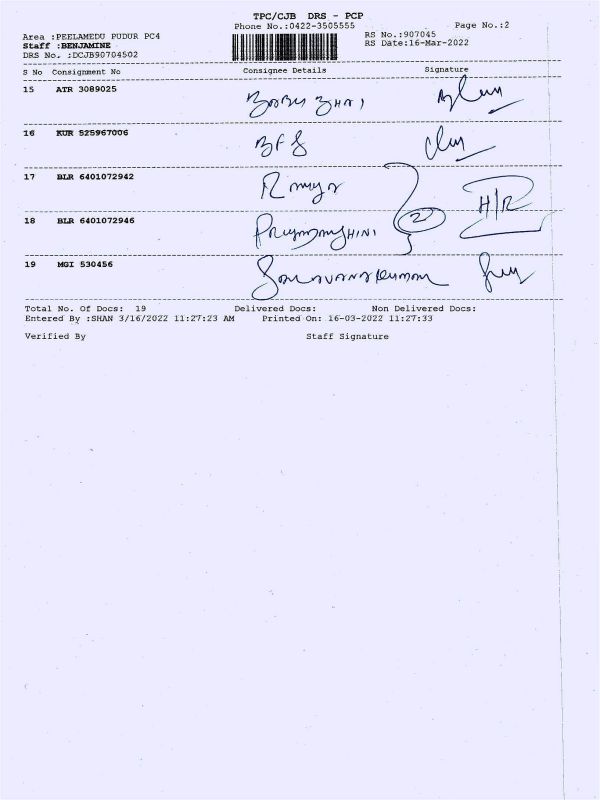 TPC/CJB DRS - PCP
Phone No.:0422-3505555
Page No.:2
Area :PEELAMEDU PUDUR PC4
RS No.:907045
Staff :BENJAMINE
RS Date:16-Mar-2022
DRS No. :DCJB90704502
S No Consignment No Consignee Details Signature
15 ATR 3089025
16 KUR 525967006 BFS
17 BLR 6401072942 Ramya
H/R
2
18 BLR 6401072946
19 MGI 530456 Saravanakumar
Total No. Of Docs: 19 Delivered Docs: Non Delivered Docs:
Entered By :SHAN 3/16/2022 11:27:23 AM Printed On: 16-03-2022 11:27:33
Verified By Staff Signature